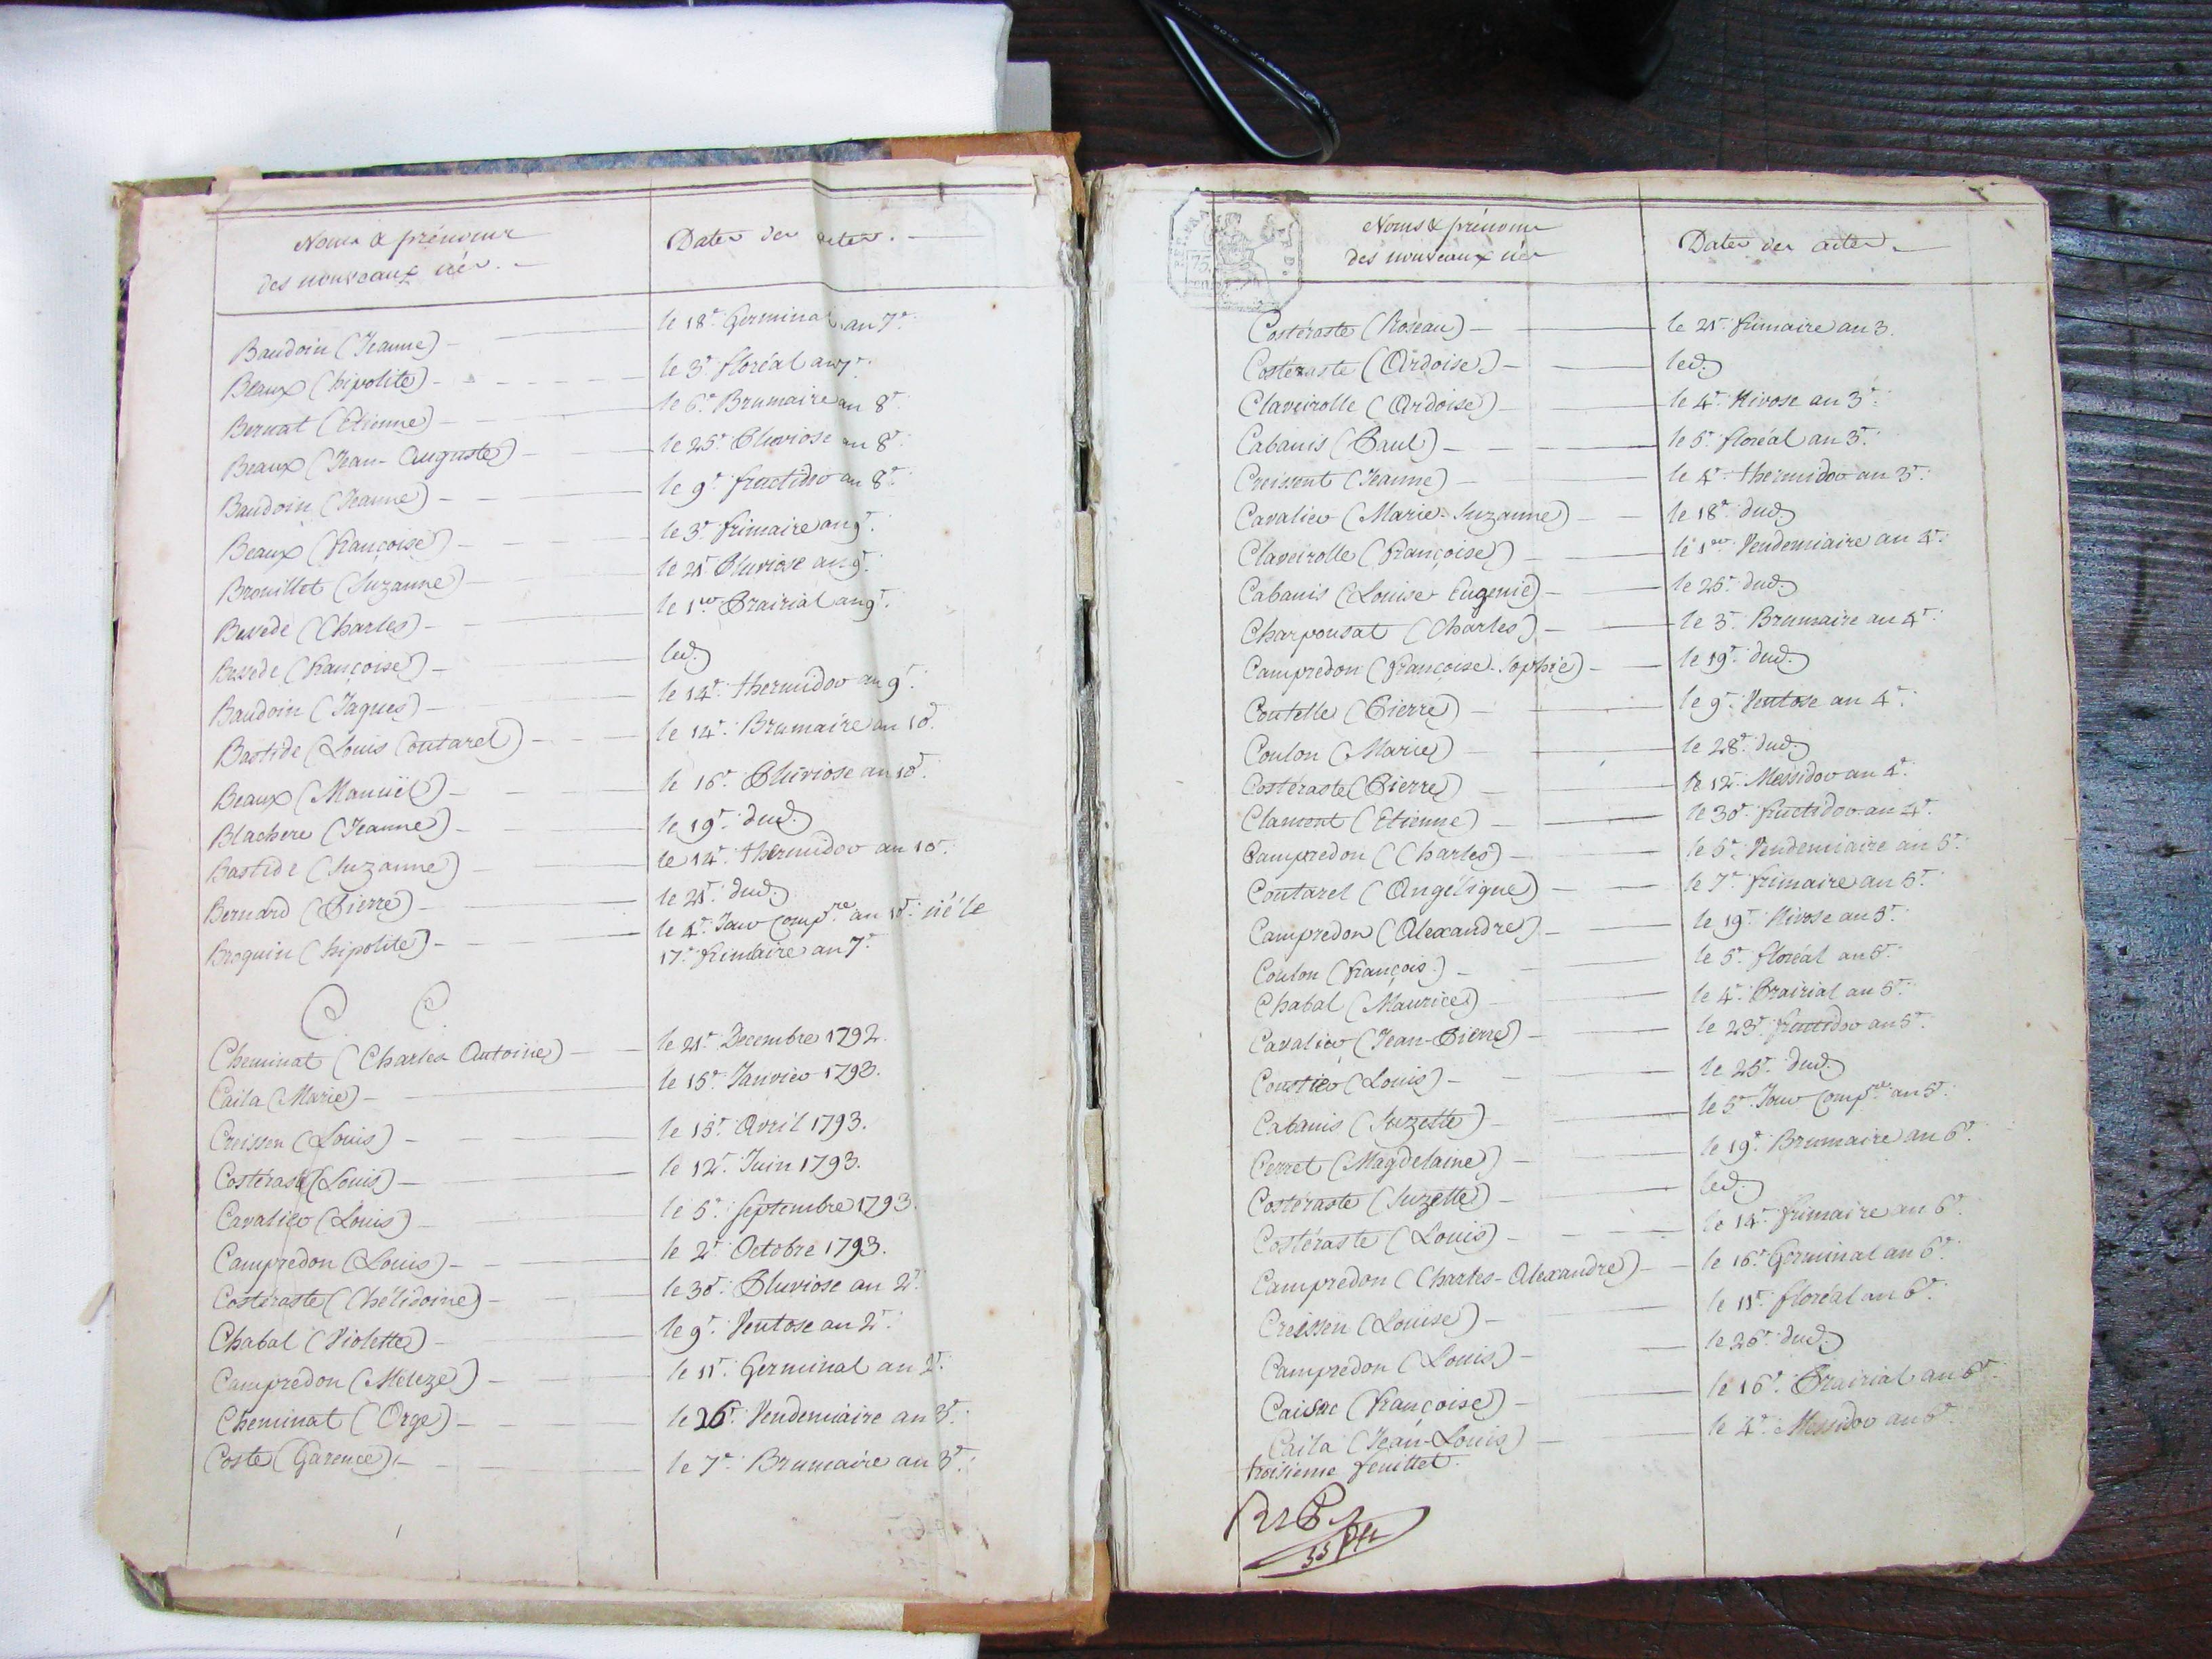 Noms & prénoms
des nouveaux nés.
Dates des actes.
Baudoin (Jeanne) le 18e. Germinal an 7e.
Beaux (hipolite) le 3e. floréal an 7e.
Bernat (Etienne) le 6e. Brumaire an 8e.
Beaux (Jean-Auguste) le 25e. Pluviose an 8e.
Baudoin (Jeanne) le 9e. fructidor an 8e.
Beaux (françoise) le 3e. frimaire an 9e.
Brouillet (Suzanne) le 21e. Pluviose an 9e.
Bessede (Charles) le 1er. Prairial an 9e.
Bessede (françoise) led.
Baudoin (Jaques) le 14e. thermidor an 9e.
Bastide (Louis Coutarel) le 14e. Brumaire an 10e.
Beaux (Manuël) le 16e. Pluviose an 10e.
Blachere (Jeanne) le 19e. dud.
Bastide (Suzanne) le 14e. thermidor an 10e.
Bernard (Pierre) le 21e. dud.
Broquin (hipolite) le 4e. Jour Compre. an 10e. né le
17e. frimaire an 7e.
C. C.
Cheminat (Charles Antoine) le 21e. Decembre 1792.
Caila (Marie) le 15e. Janvier 1793.
Creissen (Louis) le 15e. Avril 1793.
Costéraste (Louis) le 12e. Juin 1793.
Cavalier (Louis) le 5e. septembre 1793.
Campredon (Louis) le 2e. Octobre 1793.
Costéraste (Chélidoine) le 30e. Pluviose an 2e.
Chabal (Violette) le 9e. Ventose an 2e.
Campredon (Méleze) le 11e. Germinal an 2e.
Cheminat (Orge) le 26e. Vendemiaire an 3e.
Coste (Garence) le 7e. Brumaire an 3e.
Noms & prénoms
des nouveaux nés
Dates des actes.
Costéraste (Roseau) le 21e. frimaire an 3.
Costéraste (Ardoise) led.
Claveirolle (Ardoise) le 4e. Nivose an 3e.
Cabanis (Paul) le 5e. floréal an 3e.
Creissent (Jeanne) le 4e. thermidor an 3e.
Cavalier (Marie-Suzanne) le 18e. dud
Claveirolle (françoise) le 1er. Vendemiaire an 4e.
Cabanis (Louise Eugenie) le 25e. dud
Charpousat (Charles) le 3e. Brumaire an 4e.
Campredon (françoise-Sophie) le 19e. dud.
Coutelle (Pierre) le 9e. Ventose an 4e.
Coulon (Marie) le 28e. dud.
Costéraste (Pierre) le 12e. Messidor an 4e.
Clament (Etienne) le 30e. fructidor an 4e.
Campredon (Charles) le 6e. Vendemiaire an 5e.
Coutarel (Angélique) le 7e. frimaire an 5e.
Campredon (Alexandre) le 19e. Nivose an 5e.
Coulon (françois) le 5e. floréal an 5e.
Chabal (Maurice) le 4e. Prairial an 5e.
Cavalier (Jean-Pierre) le 23e. fructidor an 5e.
Coustier (Louis) le 25e. dud.
Cabanis (Suzette) le 5e. Jour Compre. an 5e.
Cerret (Magdelaine) le 19e. Brumaire an 6e.
Costéraste (Suzette) led.
Costéraste (Louis) le 14e. frimaire an 6e.
Campredon (Charles-Alexandre) le 16e. Germinal an 6e.
Creissen (Louise) le 11e. floréal an 6e.
Campredon (Louis) le 26e. dud.
Caissac (françoise) le 16e. Prairial an 6e.
Caila (Jean-Louis) le 4e. Messidor an 6e.
troisieme feuillet.